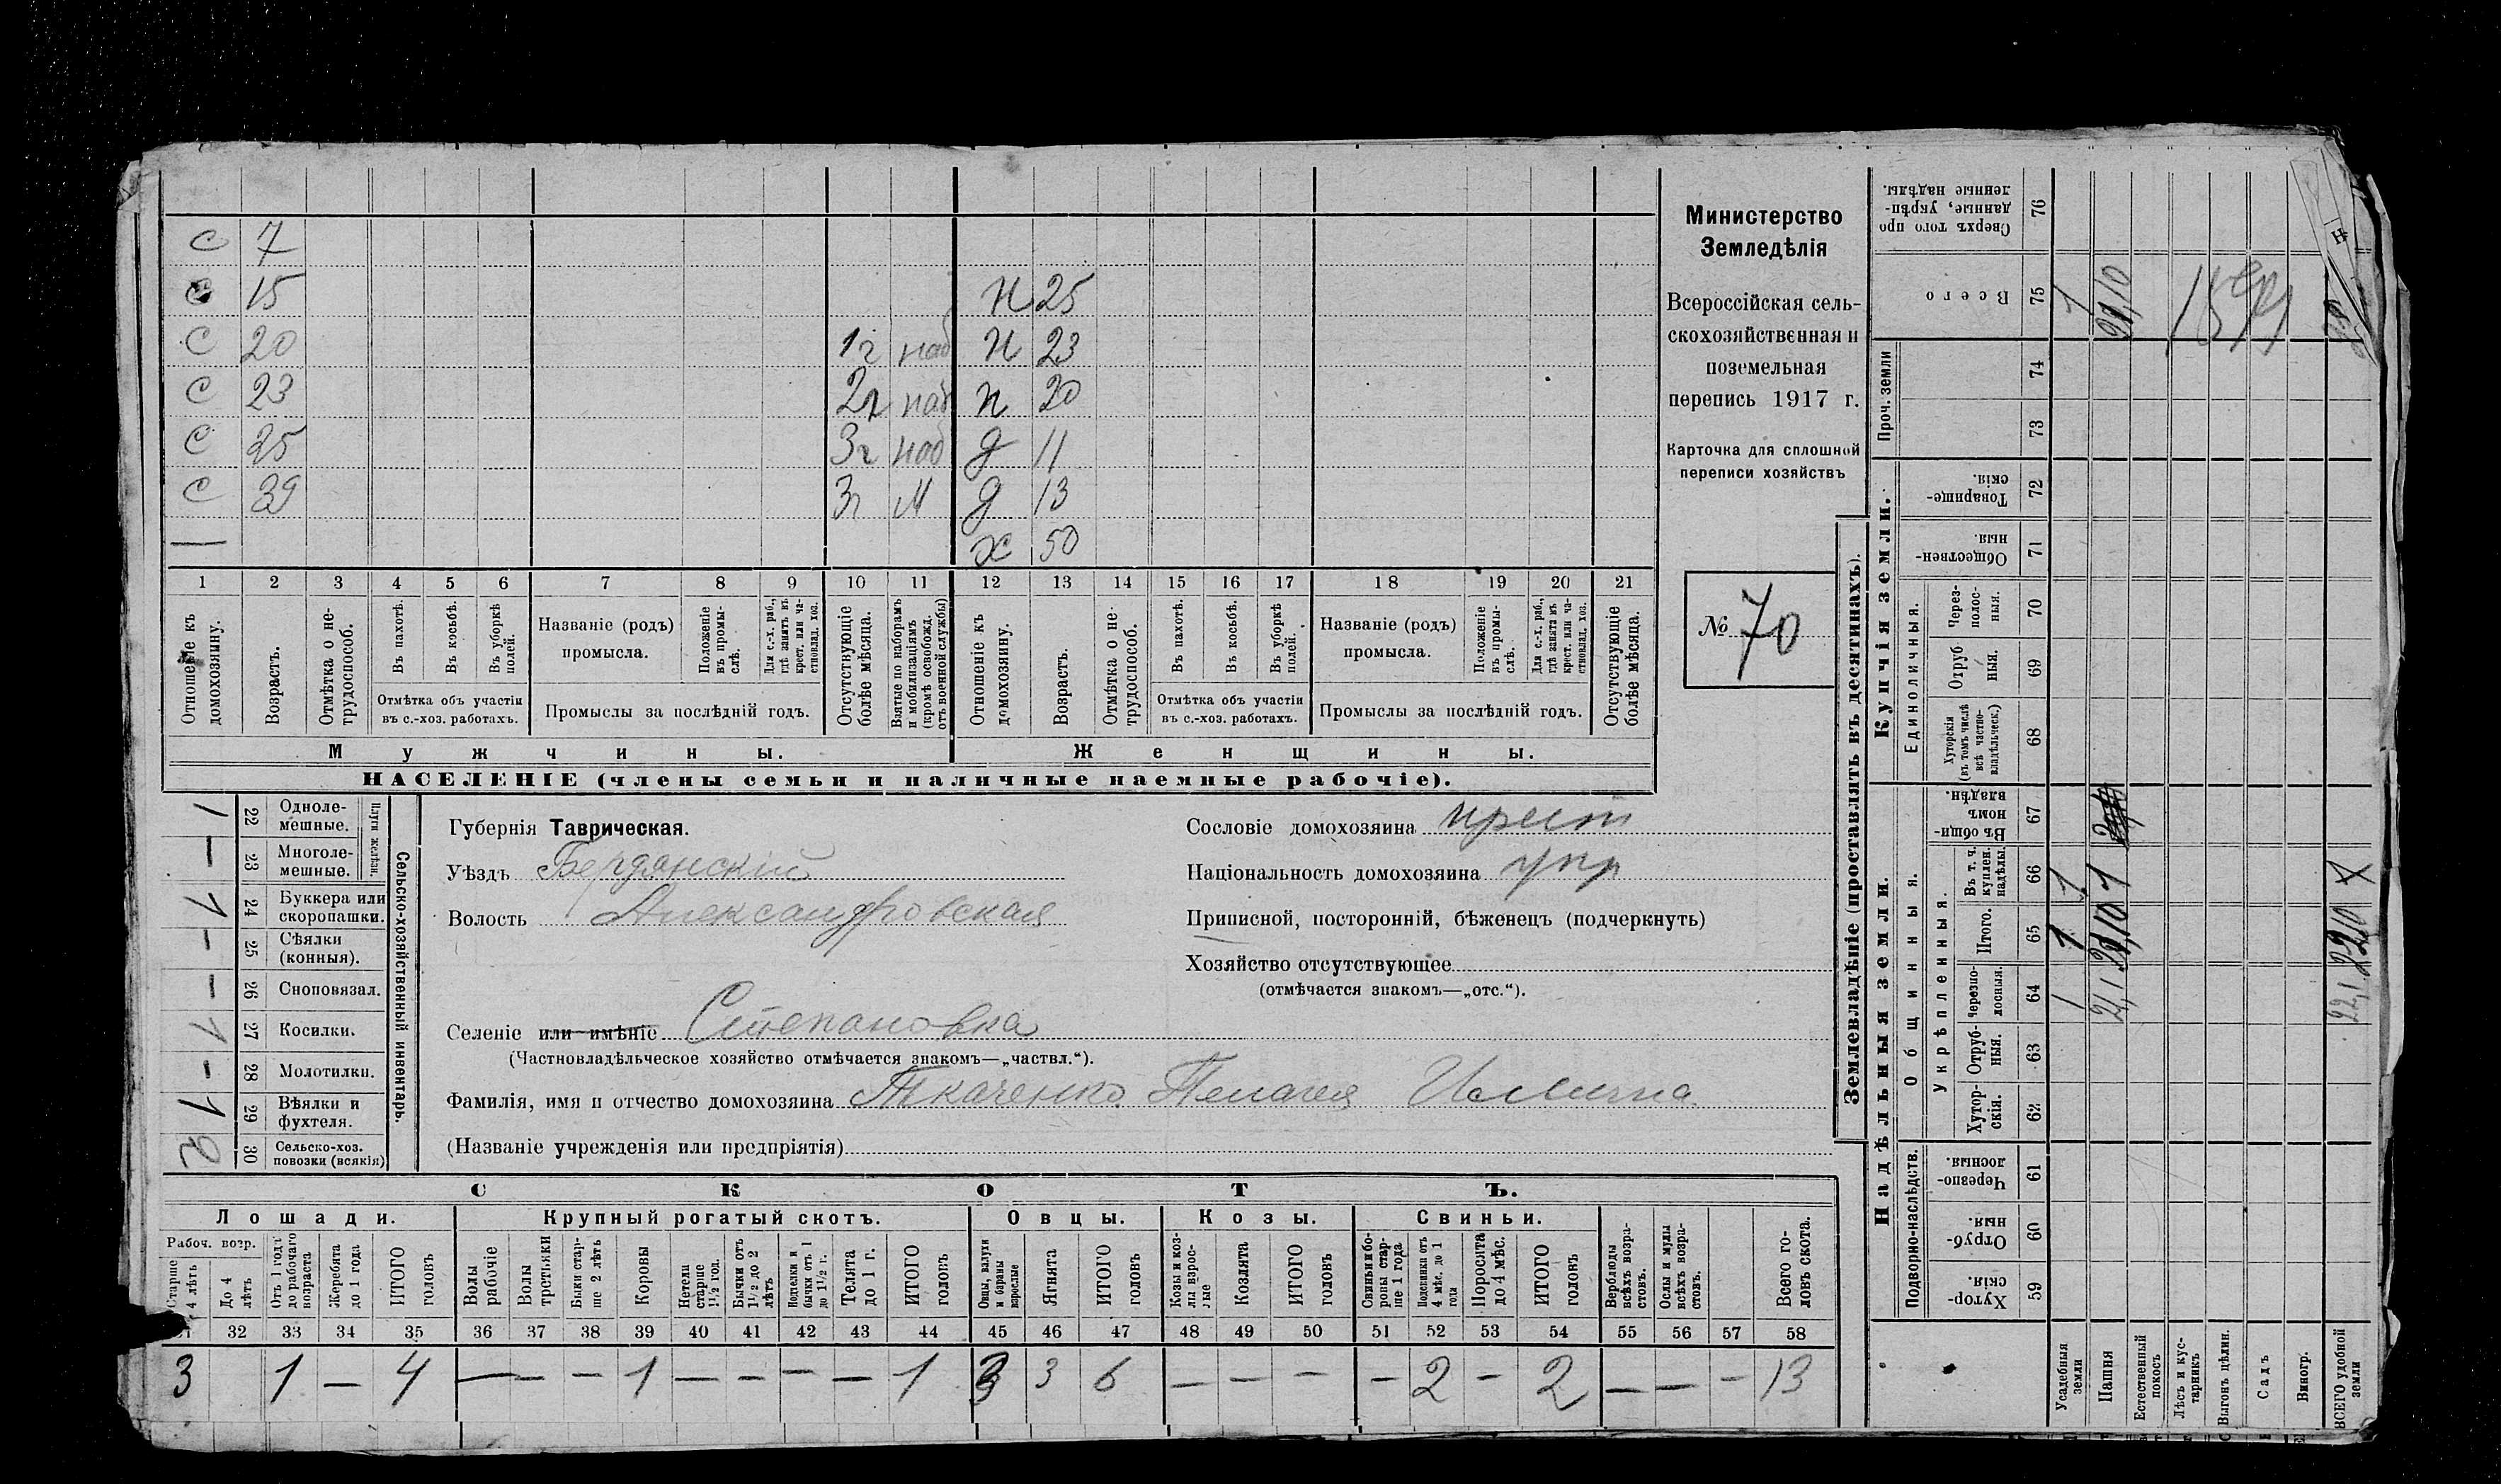 с 7
с 15 н 25
с 20 1г наб н 23
с 23 2г наб н 20
с 25 3г наб д 11
с 39 3г м д 13
— х 50
1 2 3 4 5 6 7 8 9 10 11 12 13 14 15 16 17 18 19 20 21
Отношеніе къ домохозяину.
Возрастъ.
Отмѣтка о нетрудоспособ.
Въ пахотѣ.
Въ косьбѣ.
Въ уборкѣ полей.
Отмѣтка объ участіи въ с.-хоз. работахъ.
Названіе (родъ) промысла.
Положеніе въ промыслѣ.
Для с.-х. раб., гдѣ занятъ въ крест. или частновлад. хоз.
Промыслы за послѣдній годъ.
Отсутствующіе болѣе мѣсяца.
Взятые по наборамъ и мобилизаціямъ (кромѣ освобожд. отъ военной службы)
Отношеніе къ домохозяину.
Возрастъ.
Отмѣтка о нетрудоспособ.
Въ пахотѣ.
Въ косьбѣ.
Въ уборкѣ полей.
Отмѣтка объ участіи въ с.-хоз. работахъ.
Названіе (родъ) промысла.
Положеніе въ промыслѣ.
Для с.-х. раб., гдѣ занята въ крест. или частновлад. хоз.
Промыслы за послѣдній годъ.
Отсутствующіе болѣе мѣсяца.
Мужчины. Женщины.
НАСЕЛЕНІЕ (члены семьи и наличные наемные рабочіе).
Министерство
Земледѣлія
Всероссійская сель-
скохозяйственная и
поземельная
перепись 1917 г.
Карточка для сплошной
переписи хозяйствъ
№ 70
Сельско-хозяйственный инвентарь.
Плуги желѣзн.
1 22 Однолемешные.
— 23 Многолемешные.
1 24 Буккера или скоропашки.
— 25 Сѣялки (конныя).
— 26 Сноповязал.
1 27 Косилки.
— 28 Молотилки.
1 29 Вѣялки и фухтеля.
2 30 Сельско-хоз. повозки (всякія)
Губернія Таврическая.
Уѣздъ Бердянскій
Волость Александровская
Селеніе или имѣніе Степановка
(Частновладѣльческое хозяйство отмѣчается знакомъ—„частвл.“).
Фамилія, имя и отчество домохозяина Ткаченко Пелагея
(Названіе учрежденія или предпріятія)
Сословіе домохозяина крест
Національность домохозяина укр
Приписной, посторонній, бѣженецъ (подчеркнуть)
Хозяйство отсутствующее
(отмѣчается знакомъ—„отс.“).
СКОТЪ.
Лошади. Крупный рогатый скотъ. Овцы. Козы. Свиньи.
Рабоч. возр.
Старше 4 лѣтъ
До 4 лѣтъ
Отъ 1 года до рабочаго возраста
Жеребята до 1 года
ИТОГО головъ
Волы рабочіе
Волы третьяки
Быки старше 2 лѣтъ
Коровы
Нетели старше 1½ год.
Бычки отъ 1½ до 2 лѣтъ
Подтелки и бычки отъ 1 до 1½ г.
Телята до 1 г.
ИТОГО головъ
Овцы, валухи и бараны взрослые
Ягнята
ИТОГО головъ
Козы и козлы взрослые
Козлята
ИТОГО головъ
Свиньи и боровы старше 1 года
Подсвинки отъ 4 мѣс. до 1 года
Поросята до 4 мѣс.
ИТОГО головъ
Верблюды всѣхъ возрастовъ.
Ослы и мулы всѣхъ возрастовъ.
Всего головъ скота.
32 33 34 35 36 37 38 39 40 41 42 43 44 45 46 47 48 49 50 51 52 53 54 55 56 57 58
3 1 — 4 — — — 1 — — — — 1 3 3 6 — — — — 2 — 2 — — — 13
Землевладѣніе (проставлять въ десятинахъ).
Купчія земли.
Надѣльныя земли.
Сверхъ того проданные, укрѣпленные надѣлы. 76
Всего 75
Проч. земли 74 73
Товарищескія. 72
Общественныя. 71
Единоличныя.
Черезполосныя. 70
Отрубныя. 69
Хуторскія (въ томъ числѣ всѣ частновладѣльческ.) 68
Общинныя.
Въ общинномъ владѣн. 67
Укрѣпленныя.
Въ т. ч. куплен. надѣлы. 66
Итого. 65
Черезполосныя. 64
Отрубныя. 63
Хуторскія. 62
Подворно-наслѣдств.
Черезполосныя. 61
Отрубныя. 60
Хуторскія. 59
Усадебныя земли
Пашня
Естественный покосъ
Лѣсъ и кустарникъ
Выгонъ цѣлин.
Садъ
Виногр.
ВСЕГО удобной земли
1 21,10
1 1
1 21,10 2210
1 21,1 22,1